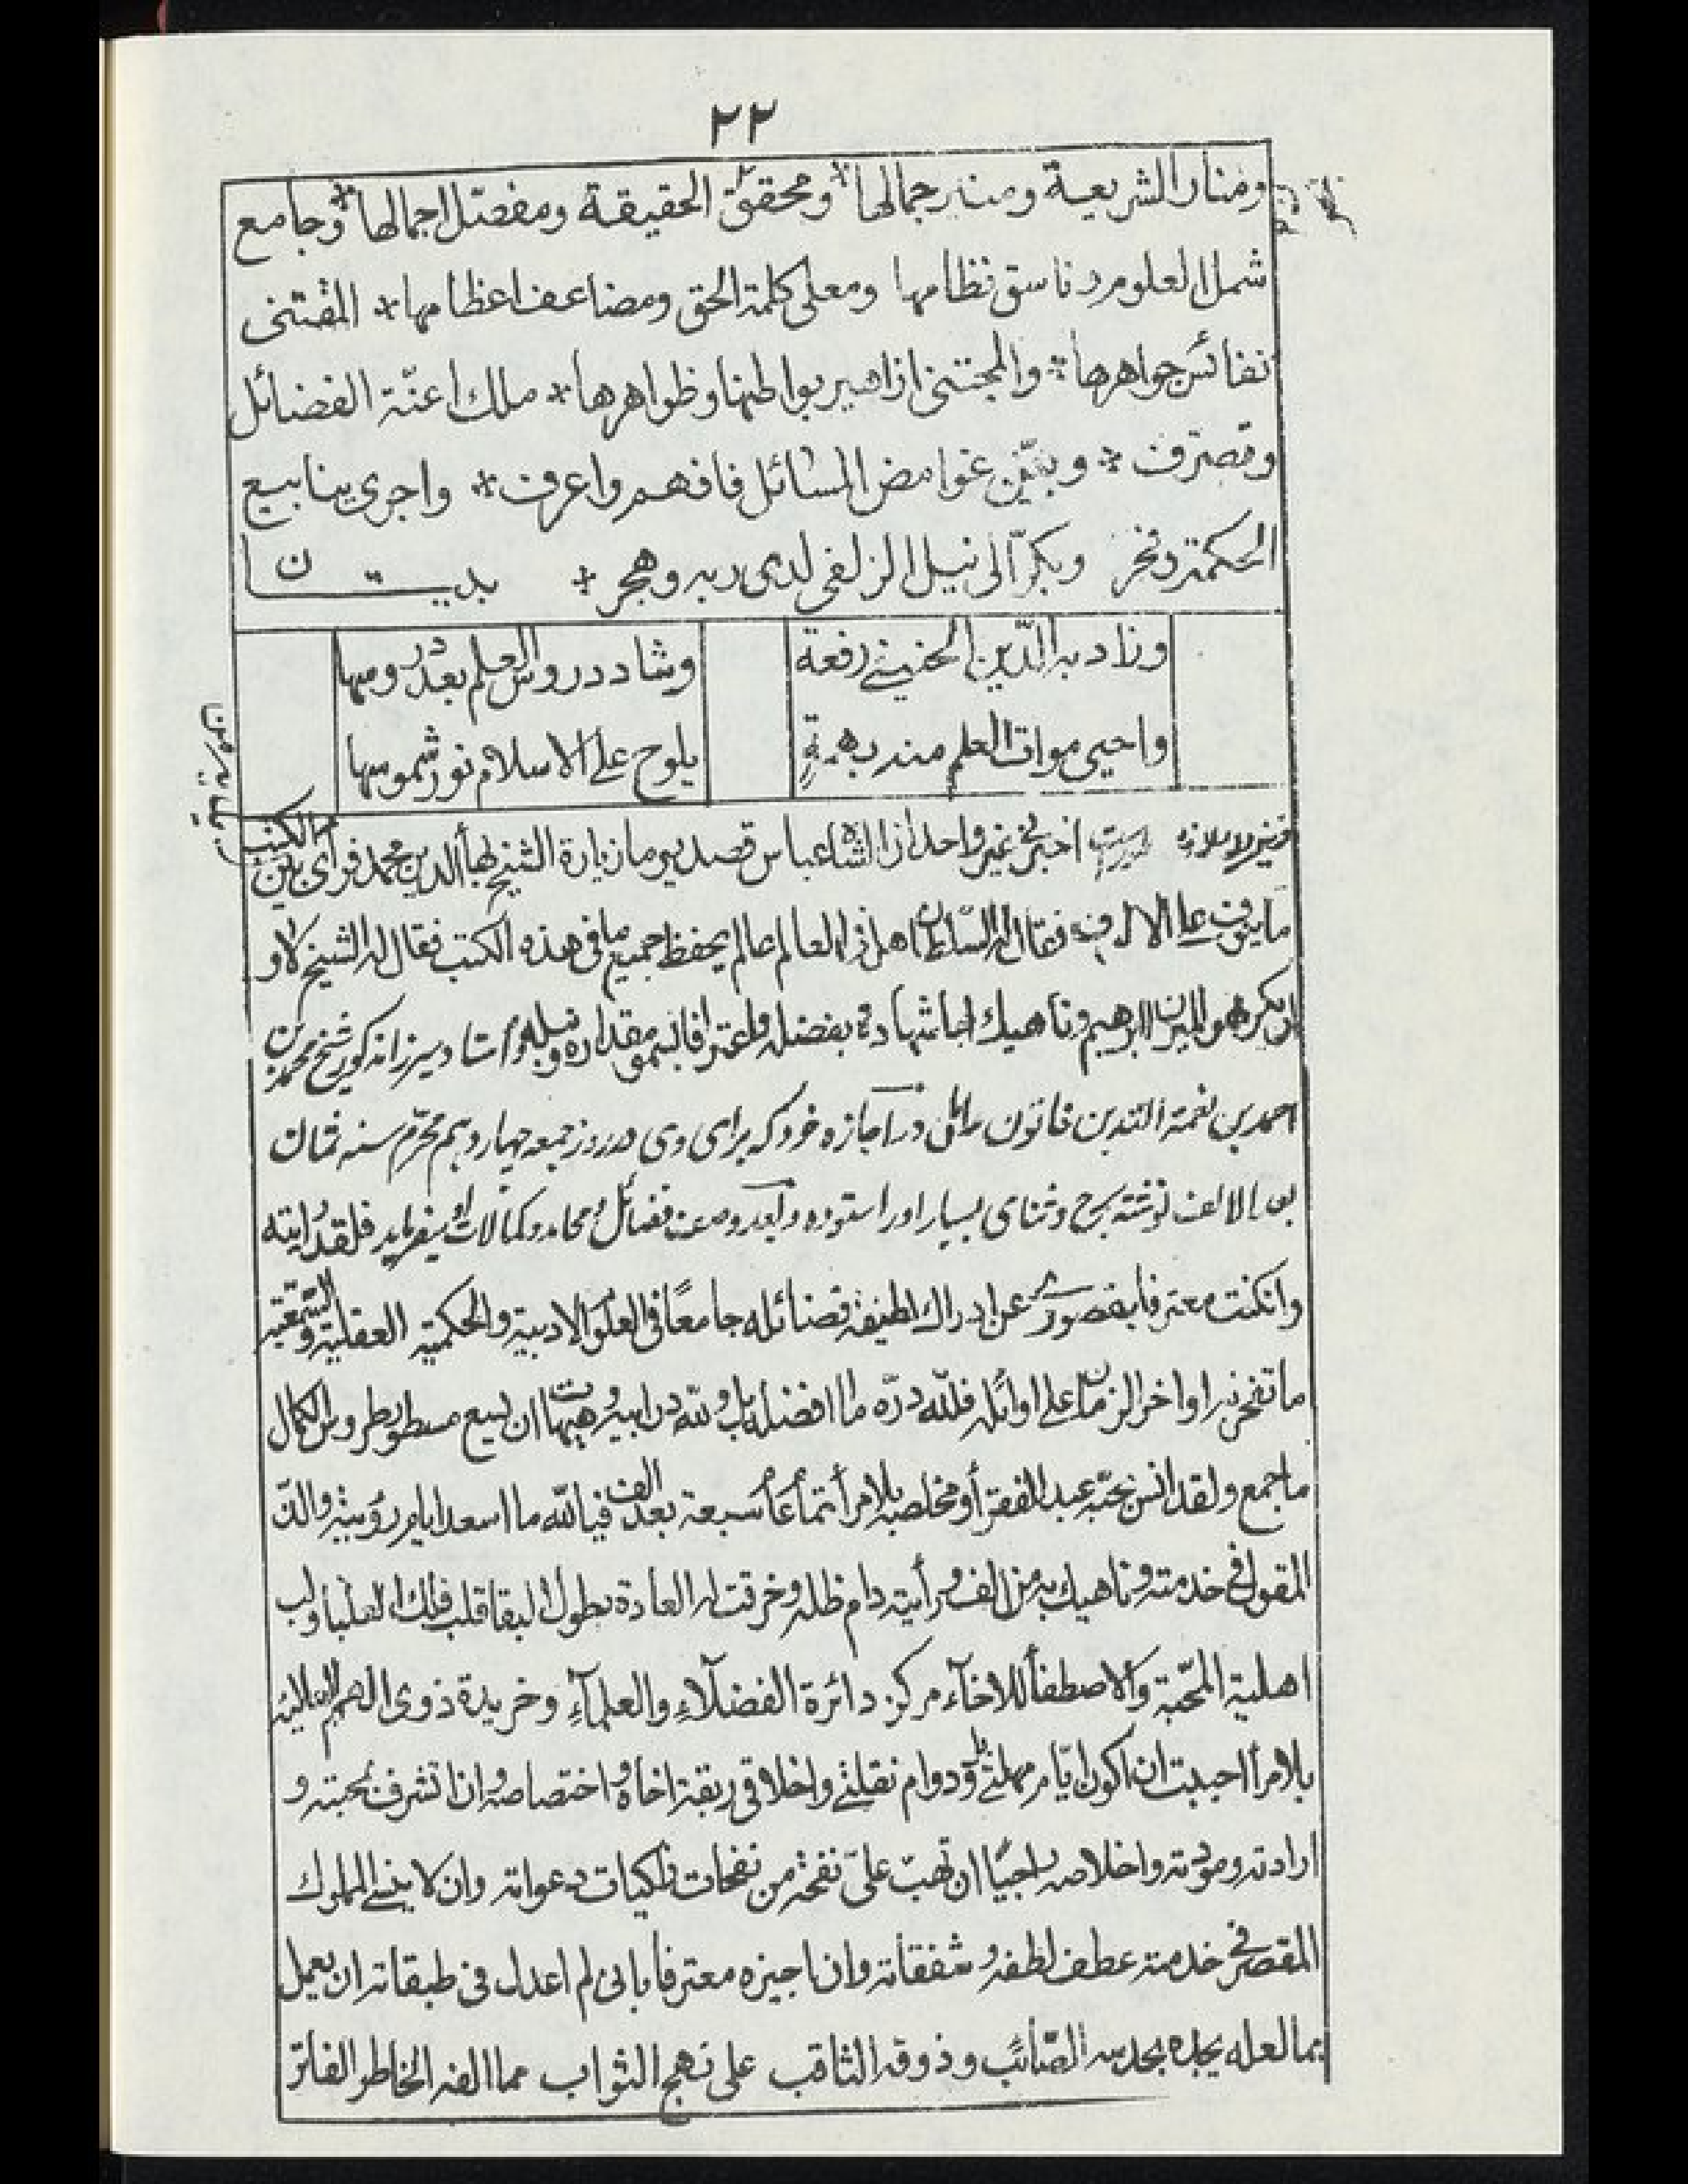 ٢٢
ومنار الشريعة ومنير جمالها * ومحقق الحقيقة ومفصّل اجمالها * وجامع
شمل العلوم وناسق نظامها ومعلى كلمة الحق ومضاعف اعظامها * المقتنى
نفائس جواهرها * والمجتنى ازاهير بواطنها وظواهرها * ملك اعنّة الفضائل
وتصرّف * وبيّن غوامض المسائل فافهم واعرف * واجرى ينابيع
الحكمة وفجر وبكرّ الى نيل الزلفى لدى ربه وهجر * بديت ن
وزاد به الدّين الحنيفي رفعة
وشاد دروس العلم بعد دروسها
واحيى موات العلم منه بهمةٍ
يلوح على الاسلام نور شموسها
اخبرني غير واحد ان الشاه عباس قصد يوما زيارة الشيخ بهاء الدين محمد فرأى بين الكتب
ما ينوف على الالوف فقال له السلطان هل في العالم عالم يحفظ جميع ما في هذه الكتب فقال له الشيخ لا و
ان يكن فهو الميرزا ابراهيم وناهيك بها شهادة بفضله واعترافا بسمو مقداره ونبله و استاد ميرزا مذكور شيخ محمد بن
احمد بن نعمة الله بن خاتون عاملى در اجازه خود كه براى وى در روز جمعه چهاردهم محرّم سنه ثمان
بعد الالف نوشته بمدح وثناى بسيار او را ستوده و بعد وصف فضائل و محامد و كمالات او ميفرمايد فلقد رأيته
وان كنت معترفا بقصوري عن ادراك لطيفة فضائله جامعًا في العلوم الادبية والحكمية العقلية والسمعية
ما تفخر به اواخر الزمان على اوائله فلله درّه ما افضله ولله در ابيه وهيهات ان يسع مسطور طروس الكمال
ما جمع ولقد انس بحبّه عبد الفقرأ ومخلصه بلا مرأ ثمانمأ سبعة بعد الف فيالله ما اسعد ايام رؤيته والذ
المقول في خدمته وناهيك به من الف ورأيته دام ظله وخرقت له العادة بطول البقا قلب فلك العليا ولب
اهلية المحّبة والاصطفأ للاخآء مركز دائرة الفضلآء والعلمآء وخريدة ذوى الهمم العالية
بلا مرأ احببت ان اكون ايّام مهلتي ودوام نقلتي واخلاقي ربقة اخاه واختصاصه وان اتشرف بمحبته و
ارادته ومودته واخلاصه راجيًا ان تهبّ علىّ نفحة من نفحات زاكيات دعواته وان لا ينسى المملوك
المقصر في خدمته عطف لطفه وشفقاته وان اجيزه معترفا باني لم اعدل في طبقاته ان يعمل
بما لعله يجده بحدسه الصّائب وذوقه الثاقب على نهج الثواب مما الفه الخاطر الفاتر